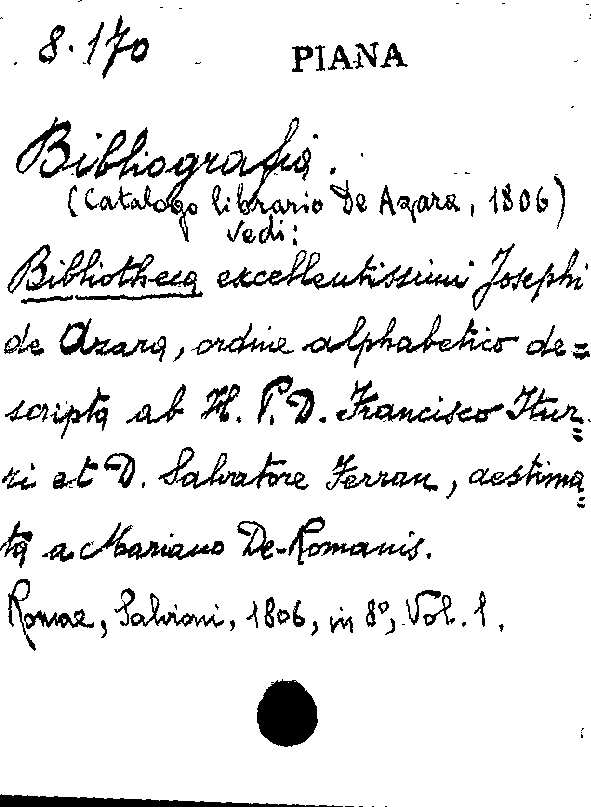 8.170
PIANA
Bibliografia.
(Catalogo librario De Azara, 1806)
Vedi:
Bibliotheca excellentissimi Josephi
de Azara, ordine alphabetico de=
scripta ab H. P. D. Francisco Itur=
ri et D. Salvatore Ferran, aestima=
ta a Mariano De-Romanis.
Romae, Salvioni, 1806, in 8º, Vol. 1.